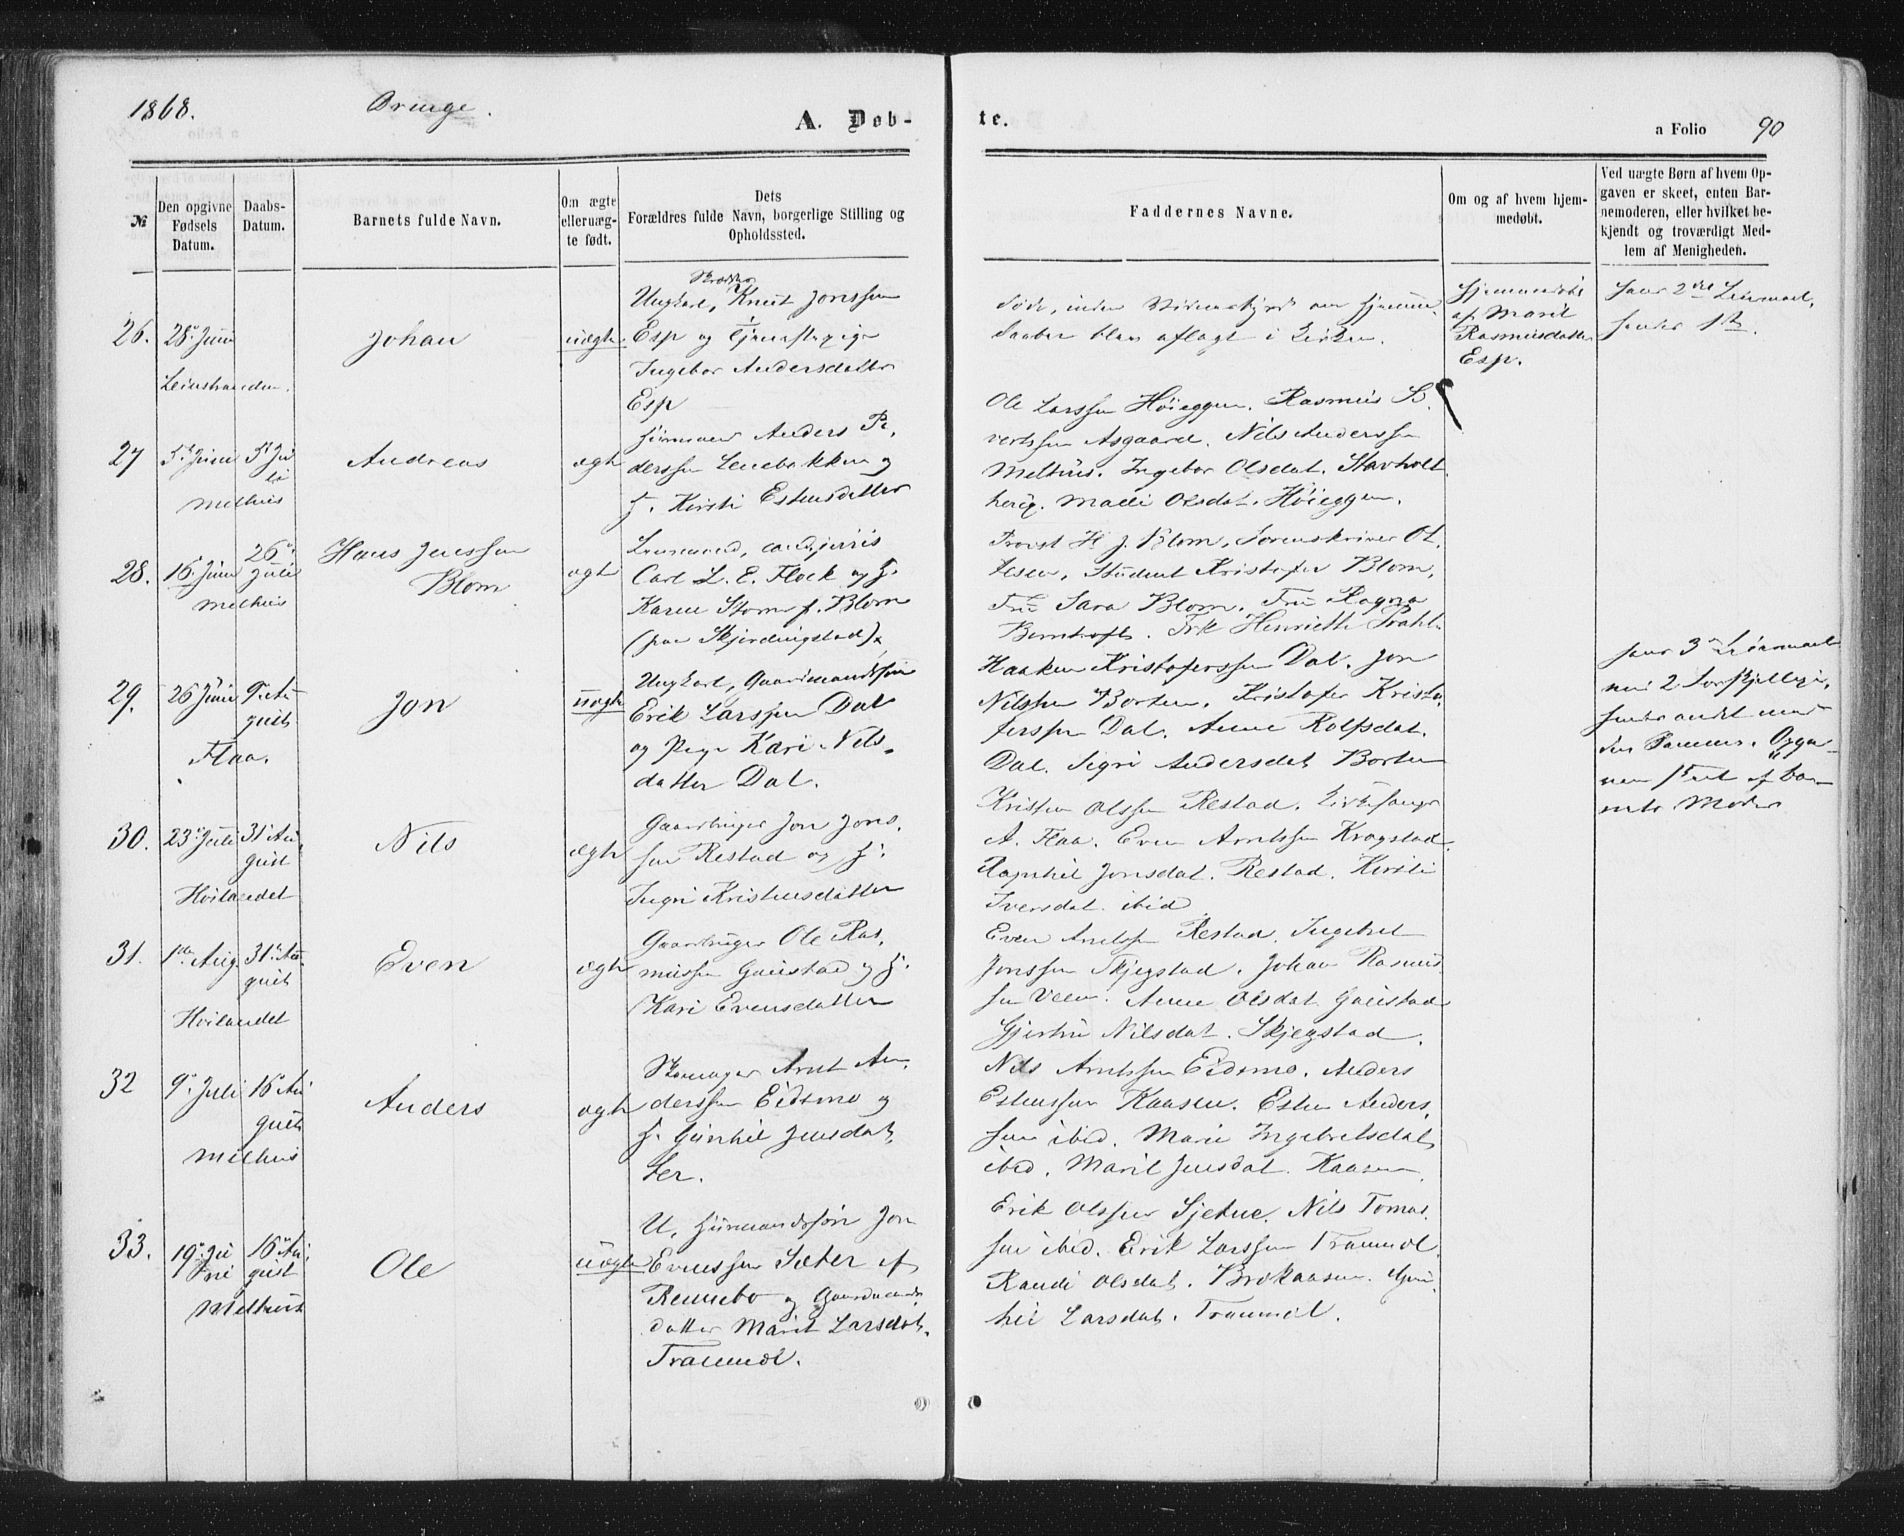 1868. Drenge.
A. Døb-
te.
a Folio 90
№
Den opgivne Fødsels Datum.
Daabs-Datum.
Barnets fulde Navn.
Om ægte eller uæg-te født.
Dets Forældres fulde Navn, borgerlige Stilling og Opholdssted.
Faddernes Navne.
Om og af hvem hjem-medøbt.
Ved uægte Børn af hvem Op-gaven er skeet, enten Bar-nemoderen, eller hvilket be-kjendt og troværdigt Med-lem af Menigheden.
26. 28de Juni
Leinstranden.
Johan
uægte
Ungkarl, Knut Jonssen
Esp og Tjenestepige
Ingebor Andersdatter
Esp
døde, inden
Daaben blev aflagt i Kirken.
Hjemmedøbt
af Marit
Rasmusdatter
Esp.
Faers 2det Leiermaal,
Moders 1ste.
27 5te Juni 5te Ju
li
Melhus
Andreas
ægte
Huusmand Anders Pe,
derssen Lenebakken og
H. Kirsti Estensdatter
Ole Larssen Høieggen. Rasmus Si,
vertssen Asgaard. Nils Anderssen
Melhus. Ingebor Olsdat. Stavholt
haug. Mali Olsdat. Høieggen.
28. 16. Juni 26de
Juli
Melhus
Hans Jenssen
Blom
ægte
Lensmand, cand. juris
Carl L. E. Flock og H.
Karen Storm f. Blom
(paa Skjerdingstad).
Provst H. J. Blom, Sorenskriver Ot,
tesen, Student Kristofer Blom,
Fru Sara Blom. Fru Ragna
Bernhoft. Frk Henriette Prahl.
29. 26 Juni 9de Au-
gust
Flaa.
Jon
uægte
Ungkarl, Gaardmandssøn
Erik Larssen Dal
og Pige Kari Nils,
datter Dal.
Haaken Kristoferssen Dal. Jon
Nilssen Borten. Kristofer Kristo,
ferssen Dal. Anne Rolfsdat.
Dal. Sigri Andersdat Borten
Faers 3de Leiermaal
med 2 forskjellige,
hendes andet med
den Samme. Opga-
ven skeet af Bar-
nets Moder
30. 23de Juli 31te Au,
gust
Hvilandet
Nils
ægte
Gaardbruger Jon Jons,
sen Restad og H.
Ingri Kristensdatter
Kristen Olssen Restad. Kirkesanger
A. Flaa. Even Arntssen Krogstad.
Ragnhil Jonsdat. Restad. Kirsti
Iversdat. ibid
31. 1ste Aug. 31te Au-
gust
Hvilandet
Even
ægte
Gaardbruger Ole Ras,
mussen Gaustad og H.
Kari Evensdatter
Even Arntssen Restad. Ingebret
Jonssen Skjegstad. Johan Rasmus
sen Veen. Anne Olsdat Gaustad
Gjertru Nilsdat. Skjegstad.
32 9de Juli 16de Au
gust
Melhus
Anders
ægte
Skomager Arnt An,
derssen Eidsmo og
H. Gunhil Jensdat,
ter.
Nils Arntssen Eidsmo. Anders
Estenssen Kaasen. Esten Anders,
sen ibid. Marit Ingebretsdat
ibid. Marit Jensdat. Kaasen.
33. 19de Ju
ni 16de Au,
gust
Melhus
Ole
uægte
U. Huusmandssøn Jon
Evenssen Sæter af
Rennebo og Gaardmands
datter Marit Larsdat.
Tranmæl.
Erik Olssen Sjetne. Nils Tomas
sen ibid. Erik Larssen Tranmæl.
Randi Olsdat. Brekaasen. Gun
hil Larsdat. Tranmæl.